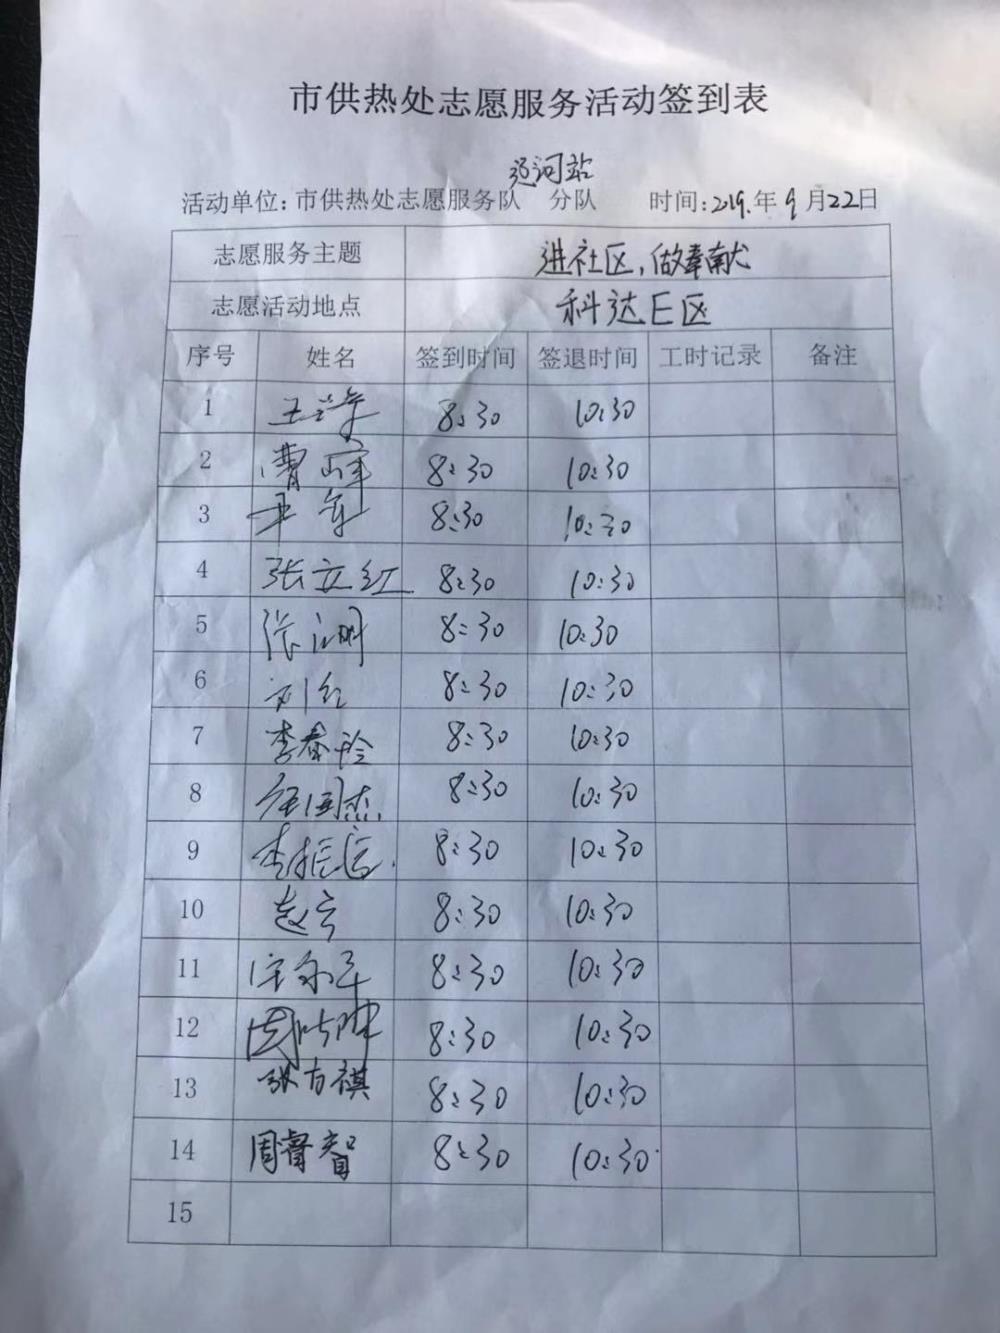 市供热处志愿服务活动签到表
运河站
活动单位:市供热处志愿服务队 分队 时间:2019.年9月22日
志愿服务主题 进社区,做奉献
志愿活动地点 科达E区
序号 姓名 签到时间 签退时间 工时记录 备注
1 8:30 10:30
2 曹峰 8:30 10:30
3 8:30 10:30
4 张立红 8:30 10:30
5 张 明 8:30 10:30
6 刘红 8:30 10:30
7 李春玲 8:30 10:30
8 国杰 8:30 10:30
9 李振 8:30 10:30
10 8:30 10:30
11 8:30 10:30
12 8:30 10:30
13 张方祺 8:30 10:30
14 周睿智 8:30 10:30
15